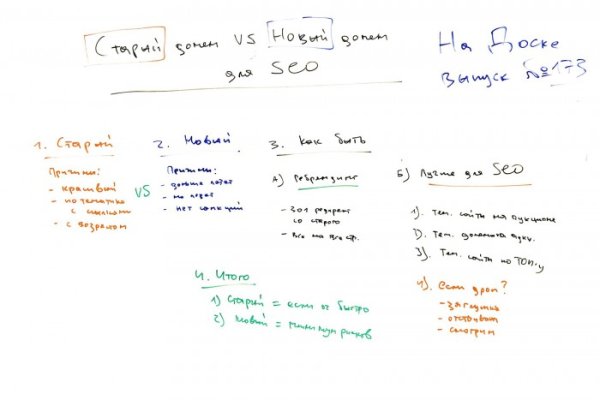 Старый домен VS Новый домен
для SEO
На Доске
выпуск №173
1. Старый
Причины:
- красивый
- по тематике
с ссылками
- с возрастом
VS
2. Новый
Причины:
- дольше
- нет санкций
3. Как быть
А) Ребрендинг
- 301 редирект
со старого
- все на все стр.
Б) Лучше для SEO
1). Тем. сайты на аукционе
2). Тем. домены
3). Тем. сайты по ТОП-у
4). Если дроп?
- заглушка
- отстойник
- смотрим
4. Итого
1) Старый = если оч быстро
2) Новый = минимум рисков